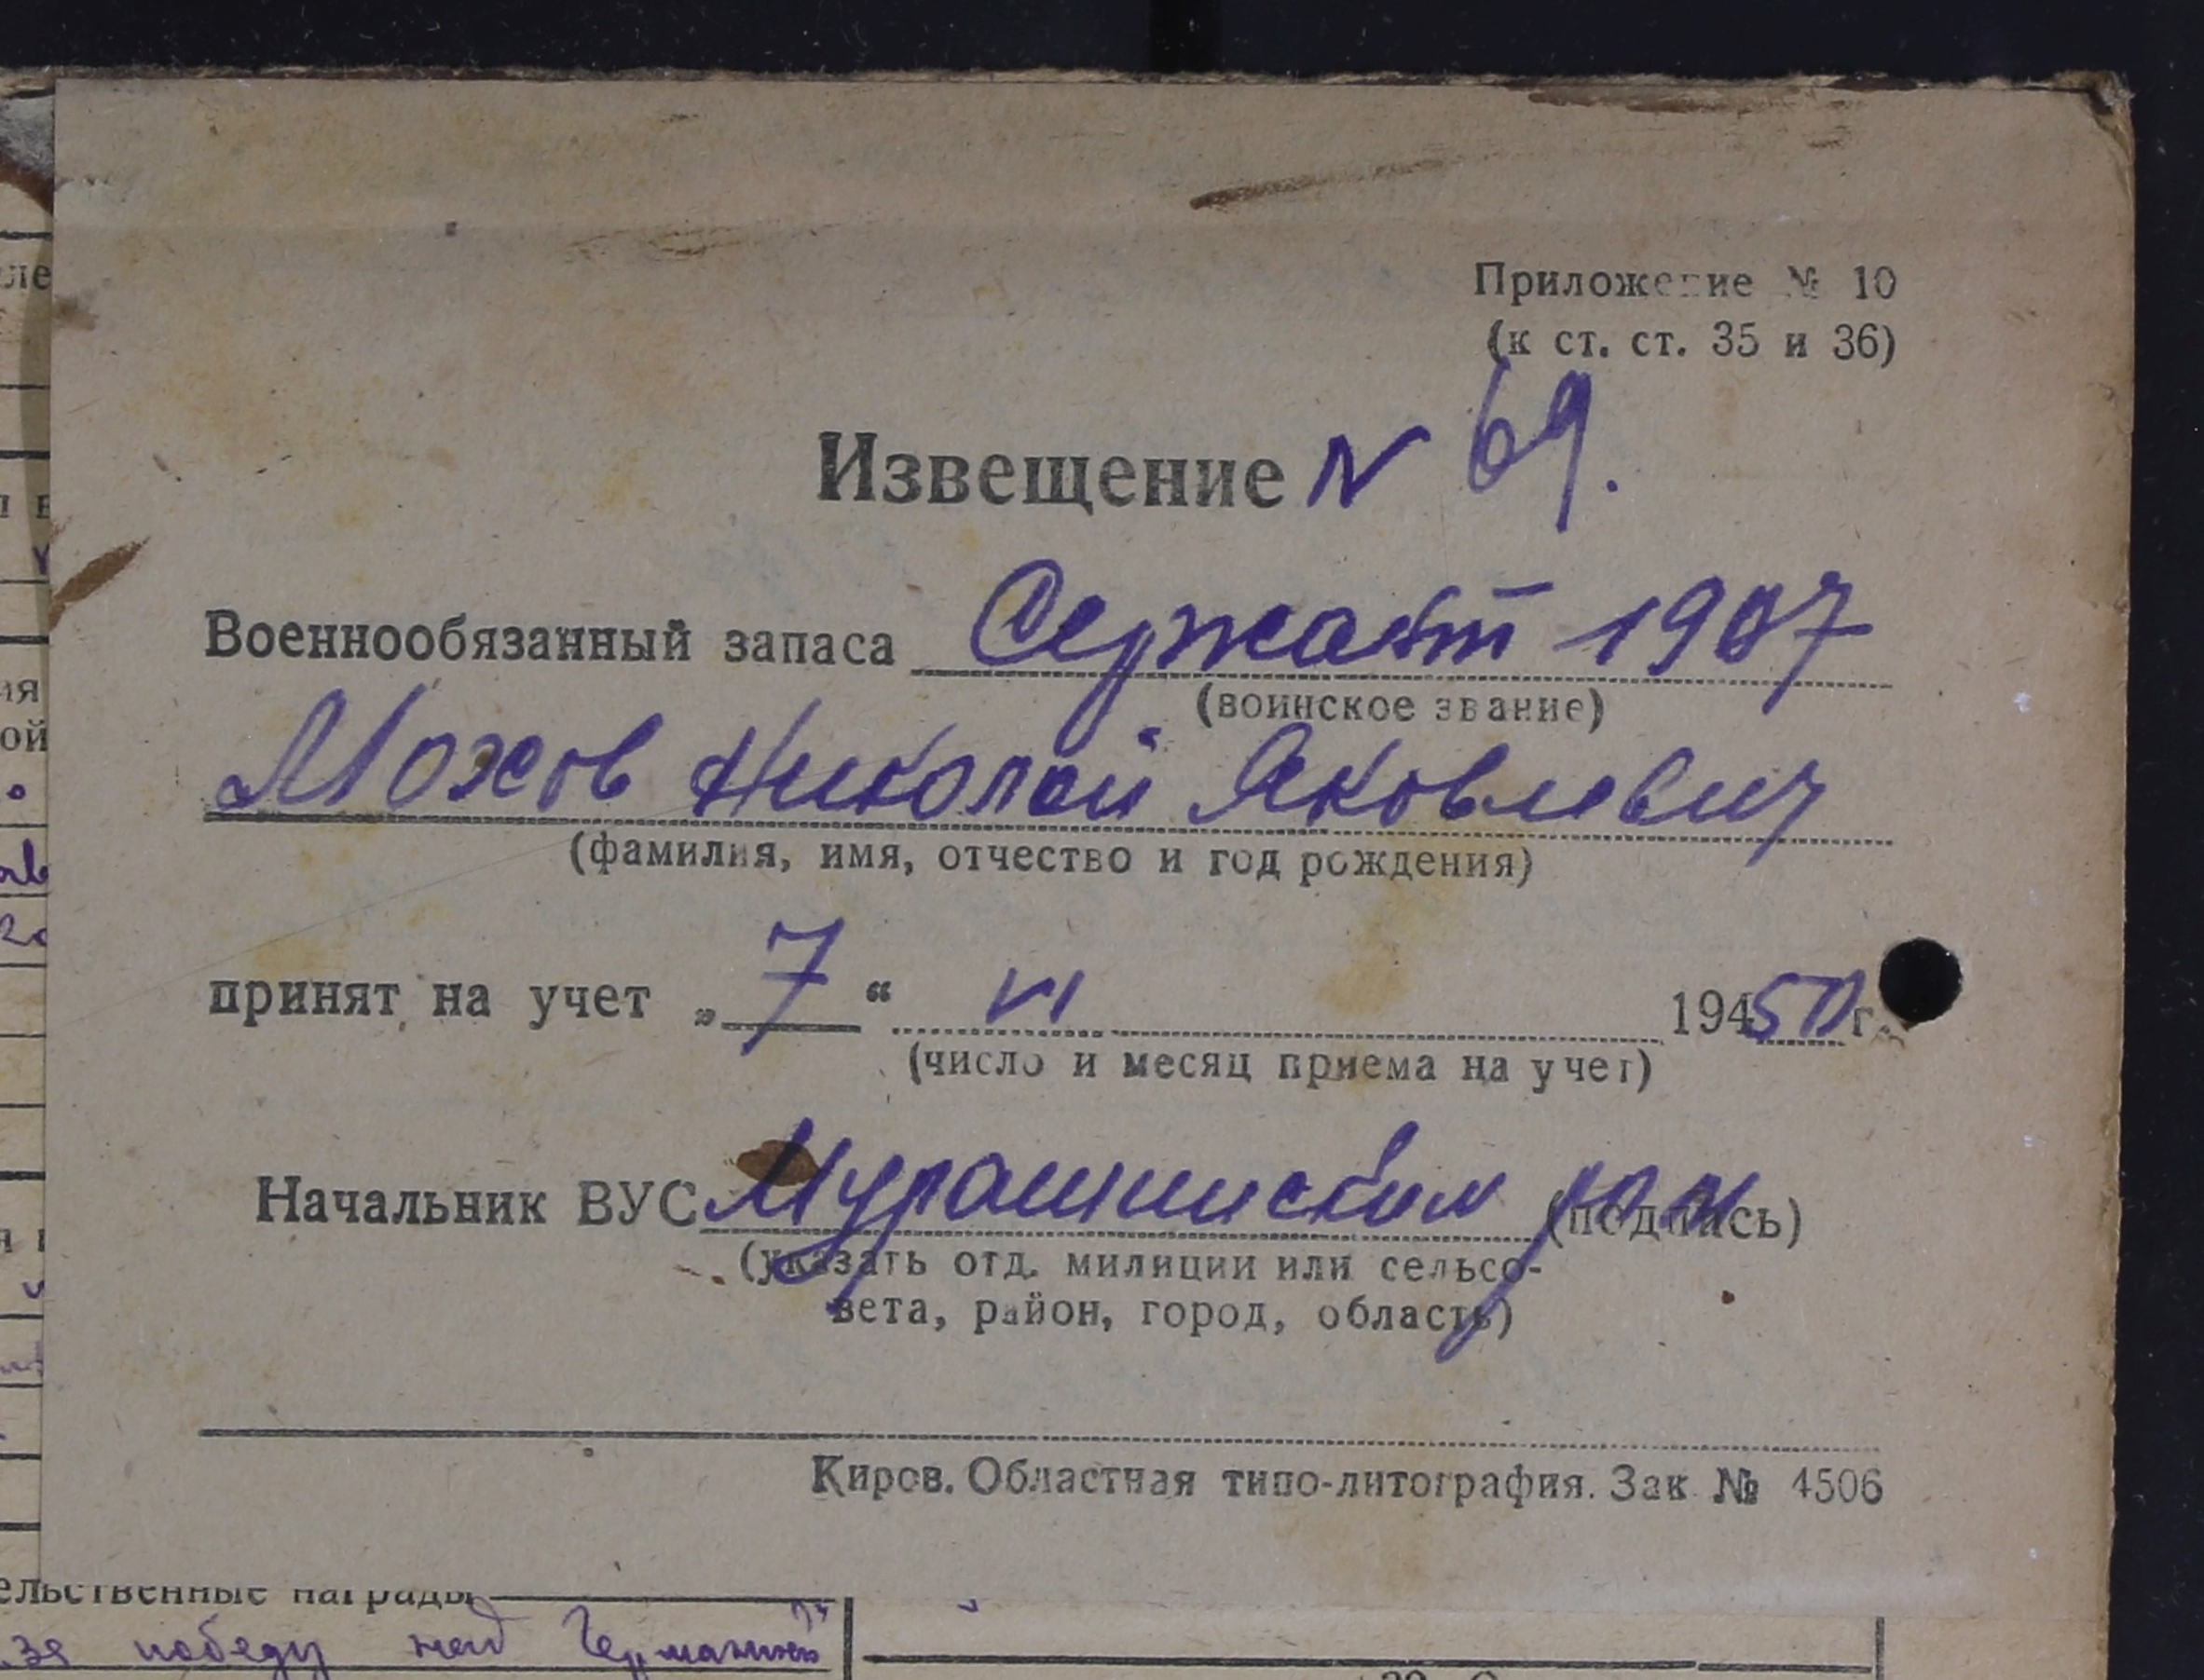 Приложение № 10
(к ст. ст. 35 и 36)
Извещение N 69.
Военнообязанный запаса Сержант 1907
(воинское звание)
Мохов Николай Яковлевич
(фамилия, имя, отчество и год рождения)
принят на учет „ 7 “ VI 194 50 г.
(число и месяц приема на учет)
Начальник ВУС Мурашинским (подпись)
(указать отд. милиции или сельсо-
вета, район, город, область)
Киров. Областная типо-литография. Зак. № 4506
ельственные награды
за победу над Германией"